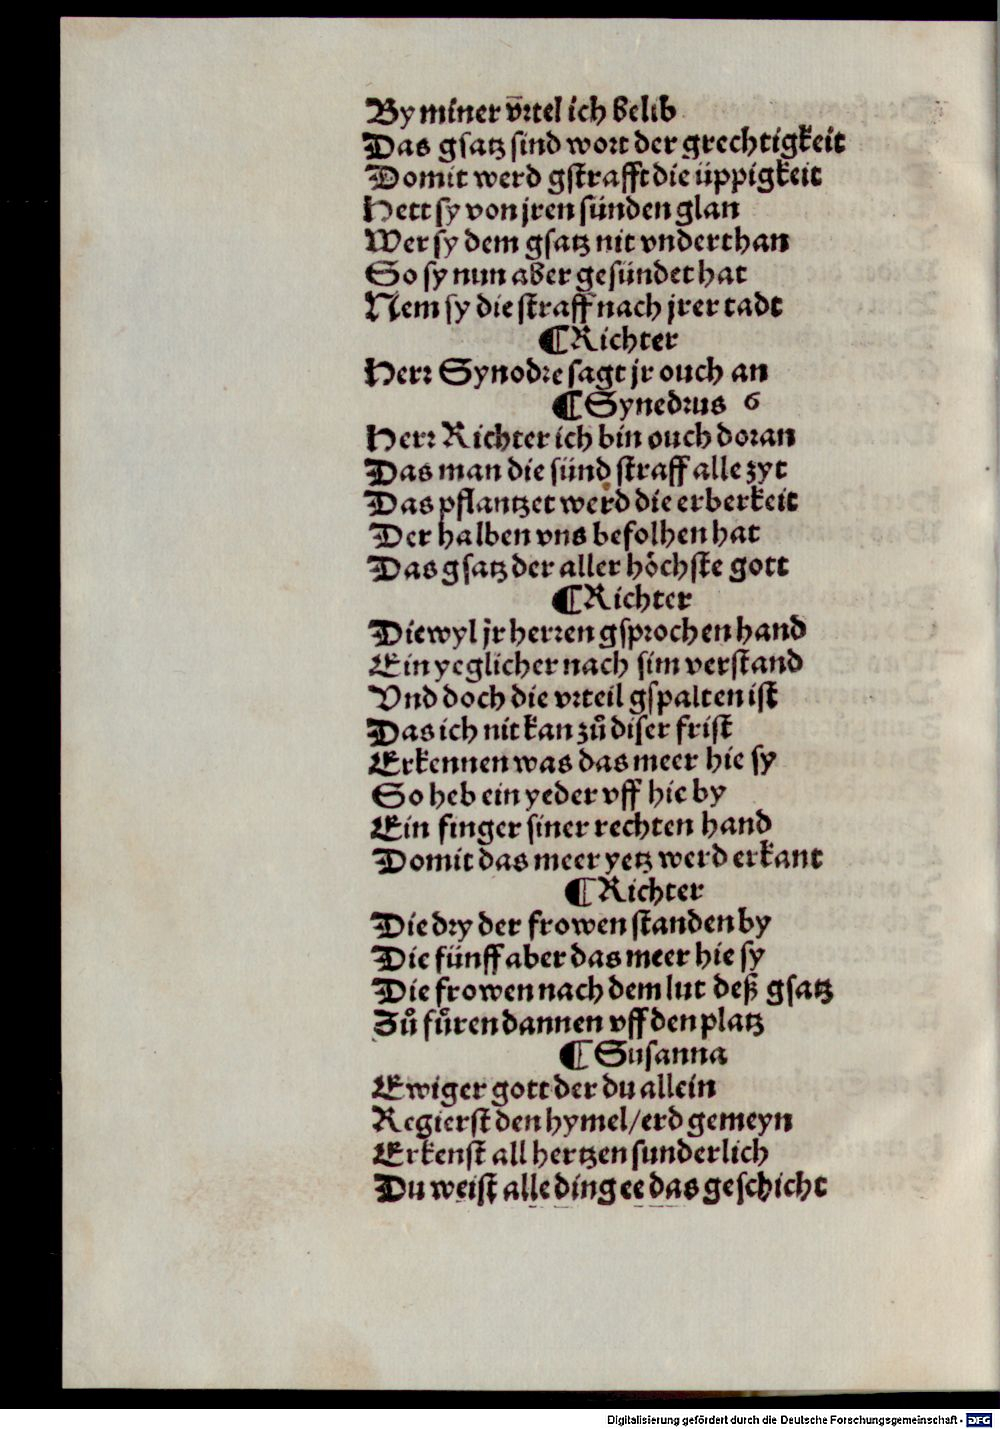 By miner vͤrtel ich belib
Das gsatz sind wort der grechtigkeit
Domit werd gstrafft die üppigkeit
Hett sy von jren sünden glan
Wer sy dem gsatz nit vnderthan
So sy nun aber gesündet hat
Nem sy die straff nach jrer tadt
¶ Richter
Herr Synodre sagt jr ouch an
¶ Synedrus 6
Herr Richter ich bin ouch doran
Das man die sünd straff alle zyt
Das pflantzet werd die erberkeit
Der halben vns befolhen hat
Das gsatz der aller höchste gott
¶ Richter
Diewyl jr herren gsprochen hand
Ein yeglicher nach sim verstand
Vnd doch die vrteil gspalten ist
Das ich nit kan zů diser frist
Erkennen was das meer hie sy
So heb ein yeder vff hie by
Ein finger siner rechten hand
Domit das meer yetz werd erkant
¶ Richter
Die dry der frowen standen by
Die fünff aber das meer hie sy
Die frowen nach dem lut deß gsatz
Zů fůren dannen vff den platz
¶ Susanna
Ewiger gott der du allein
Regierst den hymel/erd gemeyn
Erkenst all hertzen sunderlich
Du weist alle ding ee das geschicht
Digitalisierung gefördert durch die Deutsche Forschungsgemeinschaft - DFG